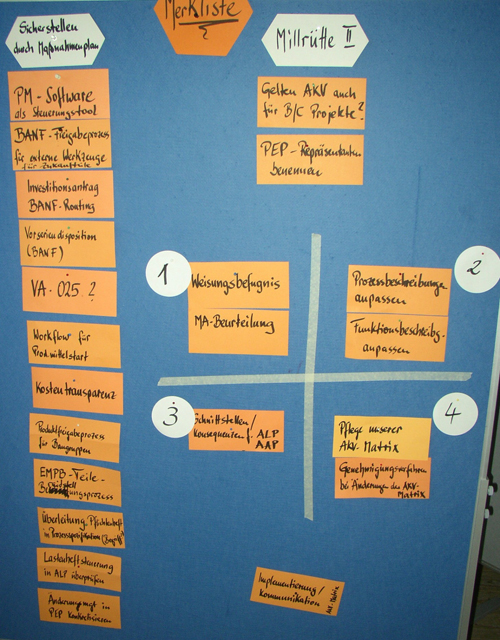 Merkliste
Sicherstellen
durch Maßnahmenplan
PM - Software
als Steuerungstool
BANF - Freigabeprozess
für externe Werkzeuge
für Zukaufteile
Investitionsantrag
BANF - Routing
Vorseriendisposition
(BANF)
VA - 025 ?
Workflow für
Prod.mittelstart
Kostentransparenz
Produktfreigabeprozess
für Baugruppen
EMPB - Teile -
Überleitung Pflichtenheft
Lastenheftsteuerung
in ALP überprüfen
Änderungsmgt in
PEP
Millrütte II
Gelten AKV auch
für B/C Projekte?
PEP - Repräsentanten
benennen
1
Weisungsbefugnis
MA - Beurteilung
2
Prozessbeschreibungen
anpassen
Funktionsbeschreibg.
anpassen
3
Schnittstellen /
Konsequenzen f. ALP
AAP
4
Pflege unserer
AKV - Matrix
Genehmigungsverfahren
bei Änderungen der AKV-
Matrix
Implementierung /
Kommunikation
Matrix